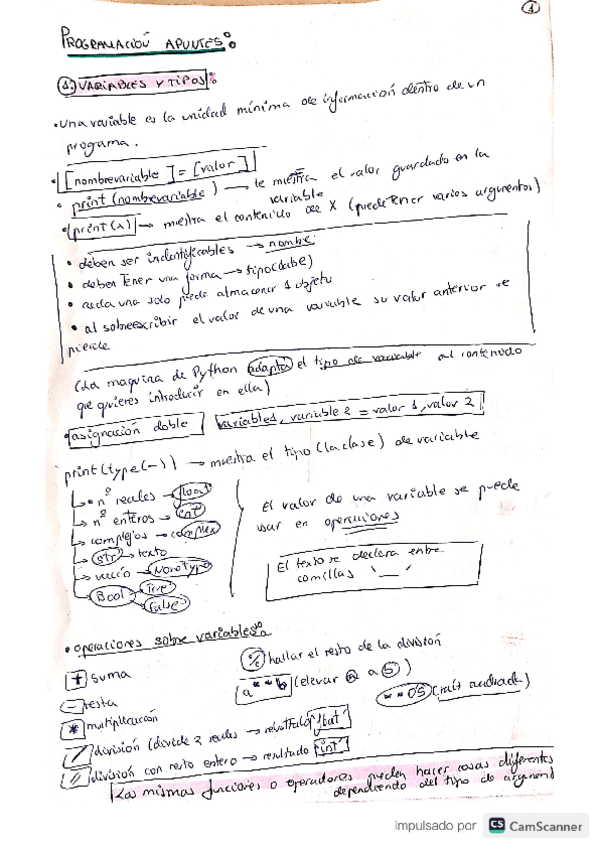 1
PROGRAMACIÓN APUNTES:
1. VARIABLES Y TIPOS:
• Una variable es la unidad mínima de información dentro de un
programa.
• [nombrevariable] = [valor]
• print (nombrevariable) → te muestra el valor guardado en la
variable
• print(x) → muestra el contenido de X (puede tener varios argumentos)
• deben ser indentificables → nombre
• deben tener una forma → tipo (clase)
• cada una solo puede almacenar 1 objeto
• al sobreescribir el valor de una variable su valor anterior se
pierde
(La maquina de Python adapta el tipo de variable al contenido
que quieres introducir en ella)
• asignación doble variable1, variable 2 = valor 1, valor 2
print(type(-)) → muestra el tipo (la clase) de variable
• nº reales → float
• nº enteros → int
complejos → complex
str → texto
vacío → NoneType
Bool → True
→ False
El valor de una variable se puede
usar en operaciones
El texto se declara entre
comillas '__'
• operaciones sobre variables:
+ suma
- resta
* multiplicación
/ división (divide 2 reales → resultado 'float'
// división con resto entero → resultado 'int'
% hallar el resto de la división
a**b (elevar a a b)
**0.5 (raíz cuadrada)
Las mismas funciones o operadores pueden hacer cosas diferentes
dependiendo del tipo de argument
impulsado por CS CamScanner